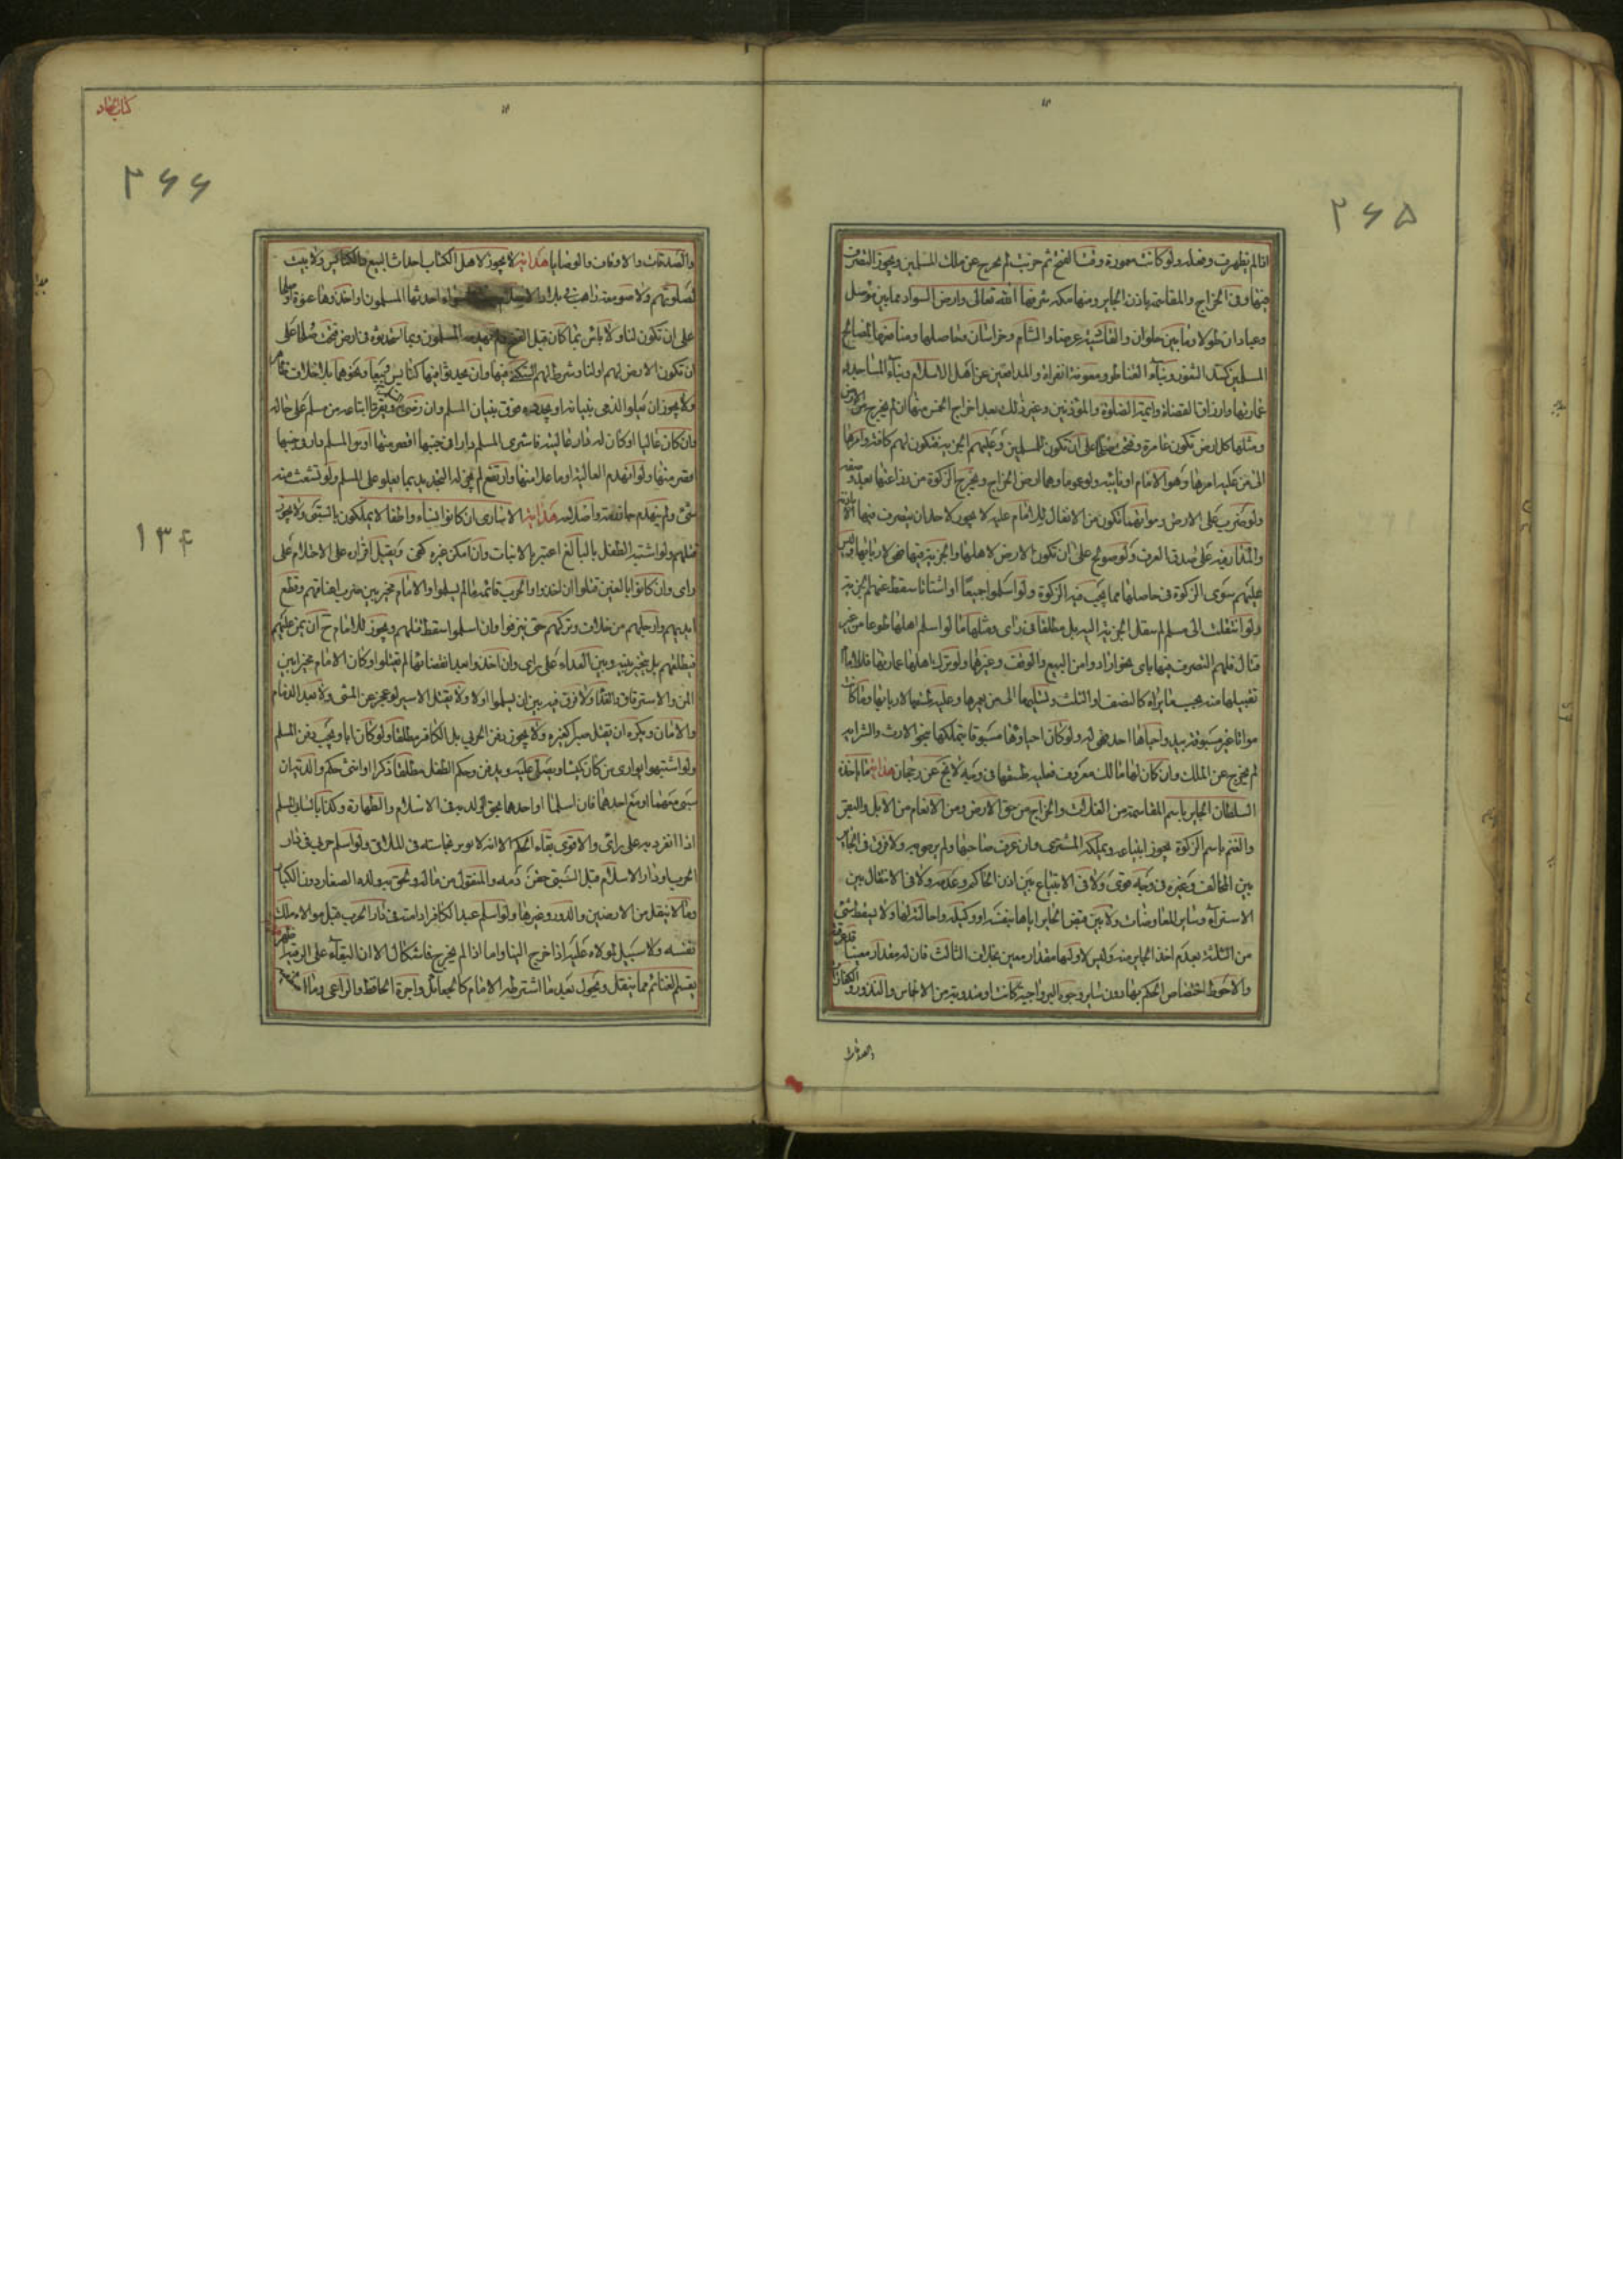 ۲۶۵
اذا لم يظهر ت وفعله ولو كانت معمورة وقت الفتح ثم خربت لم يخرج عن ملك المسلمين ويجوز التصرف
فيها وفي الخراج والمقاسمة باذن الجاير ومنها مكة شرفها الله تعالى وارض السواد مما بين موصل
وعبادان طولا وما بين حلوان والقادسية عرضا والشام وخراسان وحاصلها ومنافعها لمصالح
المسلمين كسد الثغور وبناء القناطر ومعونة الغزاة والمدافعين عن اهل الاسلام وبناء المساجد و
عمارتها وارزاق القضاة وائمة الصلوة والمؤذنين وغير ذلك بعد اخراج الخمس منها ان لم يخرج من الارض
ومثلها كل ارض تكون عامرة وفتحت صلحا على ان تكون للمسلمين وعليهم الجزية فتكون لهم كافة وامرها
الى من عليه امرها وهو الامام او نايبه ولو عموما وهما ارض الخراج ويخرج الزكوة من زراعتها بعد
ولو ضرب على الارض ومواتهما تكون من الانفال للامام عليه لا يجوز لاحد ان يتصرف فيها الا باذنه
على صدق العرف ولو صولح على ان تكون الارض لاهلها والجزية فيها فهي لاربابها وليس
عليهم سوى الزكوة في حاصلها مما يجب فيه الزكوة ولو اسلموا جميعا او اشتاتا سقط عنهم الجزية
ولو انتقلت الى مسلم لم ينتقل الجزية اليه بل مطلقا في راى ومثلها ما لو اسلم اهلها طوعا من غير
قتال فلهم التصرف فيها باى نحو ارادوا من البيع والوقف وغيرها ولو ترك اهلها عمارتها فللامام
تقبيلها منه بحسب ما يراه كالنصف او الثلث وتسليمها الى من يعمرها وعليه طسقها لاربابها وما كان
مواتا غير مسبوق بيد واحياها احد فهى له ولو كان احياؤها مسبوقا بتملكها بنحو الارث والشراء
لم يخرج عن الملك وان كان لها مالك معروف فعليه طسقها في وجه لا يخ عن رجحان هداية ما ياخذه
السلطان الجاير باسم المقاسمة من الغلات والخراج من حق الارض ومن الانعام من الابل والبقر
والغنم باسم الزكوة يجوز ابتياعه ويملكه المشترى وان عرف صاحبها ولم يرض به ولا فرق في الجاير
بين المخالف وغيره في وجه قوى ولا في الابتياع بين اذن الحاكم وعدمه ولا في الانتقال بين
الاستراء وساير المعاوضات ولا بين قبض الجاير اياها بنفسه او وكيله واحالته لها ولا يسقط شئ
من الثلثة بعدم اخذ الجاير منه وليس لاولها مقدار معين بخلاف الثالث فان له مقدار معينا
والاحوط اختصاص الحكم بها دون ساير وجوه البر واجبة كانت او مندوبة من الاخماس والنذور والكفارات
كتاب الجهاد
۲۶۶
۱۳۴
والصدقات والاوقاف والوصايا هداية لا يجوز لاهل الكتاب احداث البيع والكنايس ولا بيت
لصلوتهم ولا صومعة راهب في بلاد الاسلام سواء احدثها المسلمون او اخذوها عنوة او صلحا
على ان تكون لنا ولا باس بما كان قبل الفتح ولم يهدمه المسلمون وبما استجدوه في ارض فتحت صلحا على
ان تكون الارض لهم او لنا وشرط لهم السكنى فيها وان يحدثوا فيها كنايس وبيعا ونحوهما بلا خلاف
ولا يجوز ان يعلوا الذمى بنيانه او يجدده فوق بنيان المسلم وان رضى ويقر ما ابتاعه من مسلم على حاله
وان كان عاليا او كان له دار عالية فاشترى المسلم دارا في جنبها اقصر منها او بنى المسلم دارا في جنبها
اقصر منها ولو انهدم العالية او ما علا منها وارتفع لم يجز له التجديد بما يعلو على المسلم ولو تشعث منه
شئ ولم ينهدم جاز رمه واصلاحه هداية الاسارى ان كانوا نساء واطفالا يملكون بالسبى ولا يجوز
قتلهم ولو اشتبه الطفل بالبالغ اعتبر بالانبات وان امكن غيره كفى ويقبل اقراره على الاحتلام على
راى وان كانوا بالغين قتلوا ان اخذوا والحرب قائمة ما لم يسلموا والامام مخير بين ضرب اعناقهم وقطع
ايديهم وارجلهم من خلاف وتركهم حتى ينزفوا وان اسلموا سقط قتلهم ويجوز للامام ح ان يمن عليهم
فيطلقهم بل يتخير بينه وبين الفداء على راى وان اخذوا بعد انقضائها لم يقتلوا وكان الامام مخيرا بين
المن والاسترقاق والفداء ولا فرق فيه بين ان يسلموا اولا ولا يقتل الاسير لو عجز عن المشى ولا بعد الذمام
والامان ويكره ان يقتل صبرا كغيره ولا يجوز دفن الحربى بل الكافر مطلقا ولو كان ابا ويجب دفن المسلم
ولو اشتبهوا يوارى من كان كميشا ويصلى عليه ويدفن وحكم الطفل مطلقا ذكرا او انثى حكم والديه ان
سبى معهما او مع احدهما فان اسلما او احدهما يحق الولد به في الاسلام والطهارة وكذا بالسابى المسلم
اذا انفرد به على راى والاقوى بقاء الحكم الا انه لا يوثر نجاسته في الملاقى ولو اسلم حربى في دار
الحرب او دار الاسلام قبل السبى حقن دمه والمنقول من ماله ويحق به ولده الصغار دون الكبار
وما لا ينقل من الارضين والدور وغيرها ولو اسلم عبد الكافر او امته في دار الحرب قبل مولاه ملك
نفسه ولا سبيل لمولاه عليه اذا خرج الينا واما اذا لم يخرج فاشكال الا ان البقاء على الرقية اظهر
يقسم الغنائم مما ينقل ويحول بعد ما اشترطه الامام كالجعائل واجرة الحافظ والراعى وما